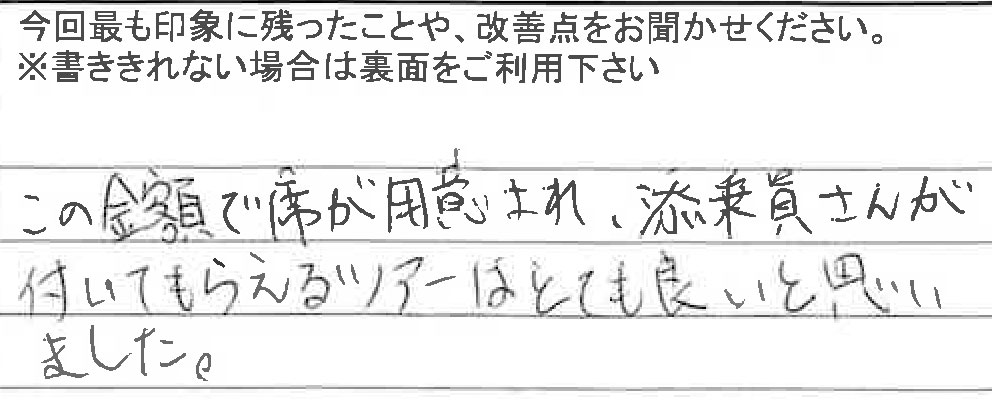 今回最も印象に残ったことや、改善点をお聞かせください。
※書ききれない場合は裏面をご利用下さい
この金額で席が用意され、添乗員さんが
付いてもらえるツアーはとても良いと思い
ました。